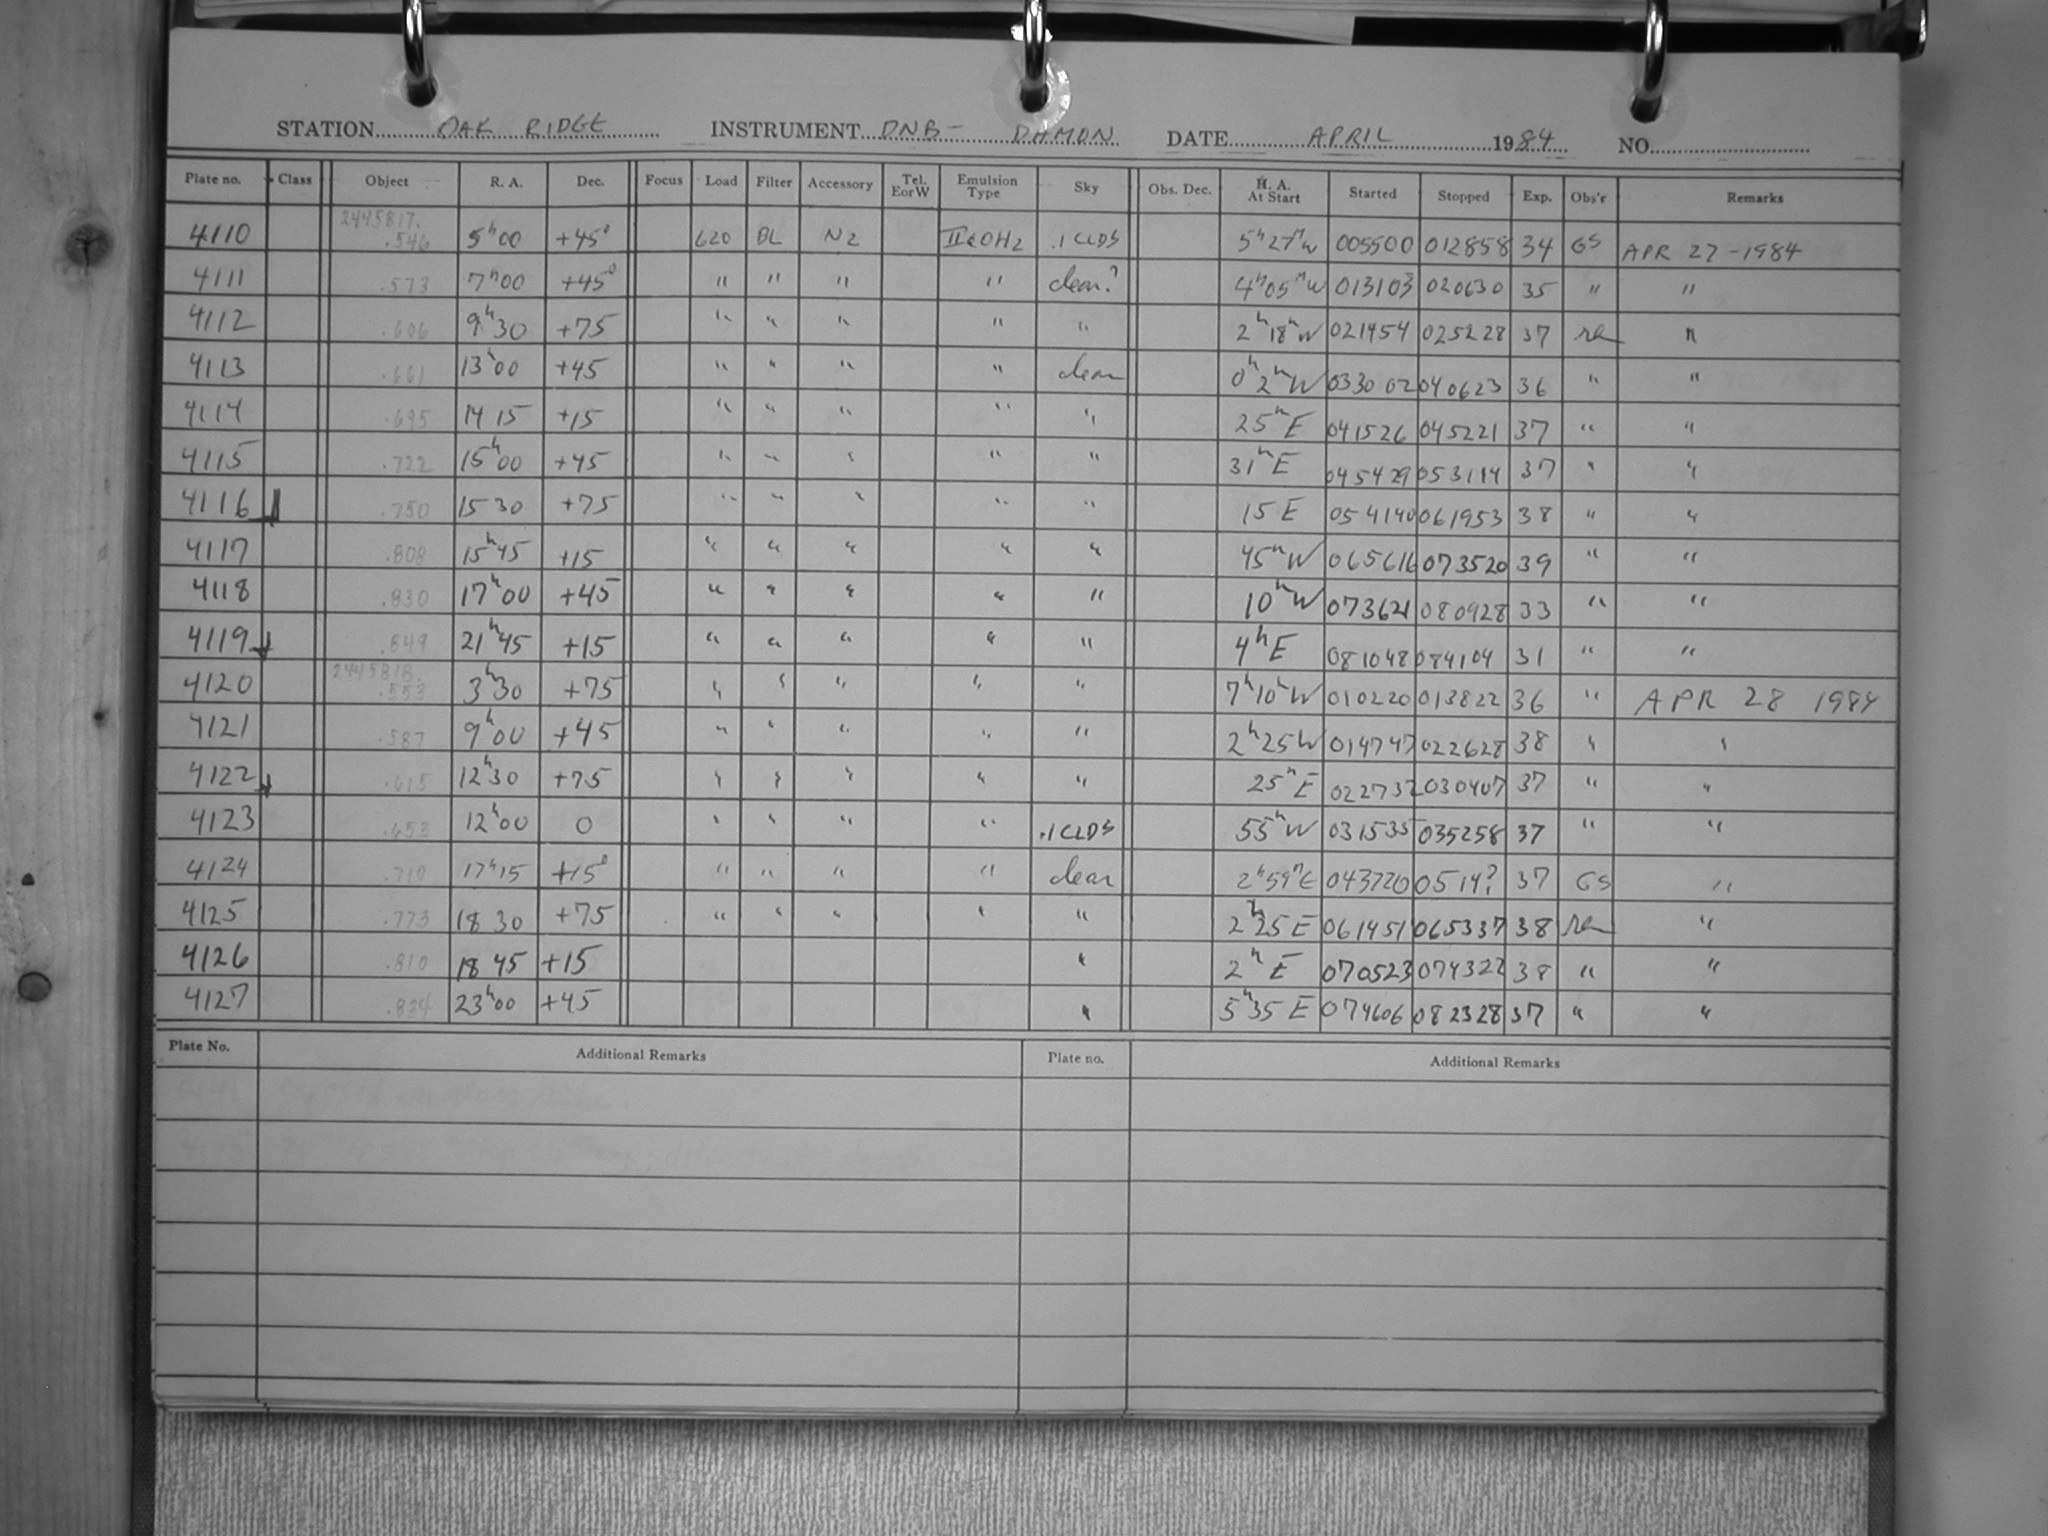 STATION OAK RIDGE INSTRUMENT DNB - DAMON DATE APRIL 1984 NO.
Plate no. Class Object R. A. Dec. Focus Load Filter Accessory Tel. E or W Emulsion Type Sky Obs. Dec. H. A. At Start Started Stopped Exp. Obs'r Remarks
2445817.
4110 .546 5h00 +45° 620 BL N2 IIaOH2 .1 CLDS 5h27m W 005500 012858 34 GS APR 27-1984
4111 .573 7h00 +45° " " " " clear? 4h05m W 013103 020630 35 " "
4112 .606 9h30 +75 " " " " " 2h18m W 021454 025228 37 "
4113 .661 13h00 +45 " " " " clear 0h2m W 033002 040623 36 " "
4114 .695 14 15 +15 " " " " " 25m E 041526 045221 37 " "
4115 .722 15h00 +45 " " " " " 31m E 045429 053114 37 " "
4116 .750 15 30 +75 " " " " " 15 E 054140 061953 38 " "
4117 .808 15h45 +15 " " " " " 45m W 065616 073520 39 " "
4118 .830 17h00 +45 " " " " " 10m W 073621 080928 33 " "
4119 .849 21h45 +15 " " " " " 4h E 081048 084104 31 " "
2445818.
4120 .553 3h30 +75 " " " " " 7h10m W 010220 013822 36 " APR 28 1984
4121 .587 9h00 +45 " " " " " 2h25 W 014747 022628 38 " "
4122 .615 12h30 +75 " " " " " 25m E 022732 030407 37 " "
4123 .653 12h00 0 " " " " .1 CLDS 55m W 031535 035258 37 " "
4124 .710 17h15 +15° " " " " clear 2h59m E 043720 0514? 37 GS "
4125 .773 18 30 +75 " " " " " 2h25 E 061451 065337 38 "
4126 .810 18 45 +15 " 2h E 070523 074322 38 " "
4127 .834 23h00 +45 " 5h35 E 074606 082328 37 " "
Plate No. Additional Remarks Plate no. Additional Remarks